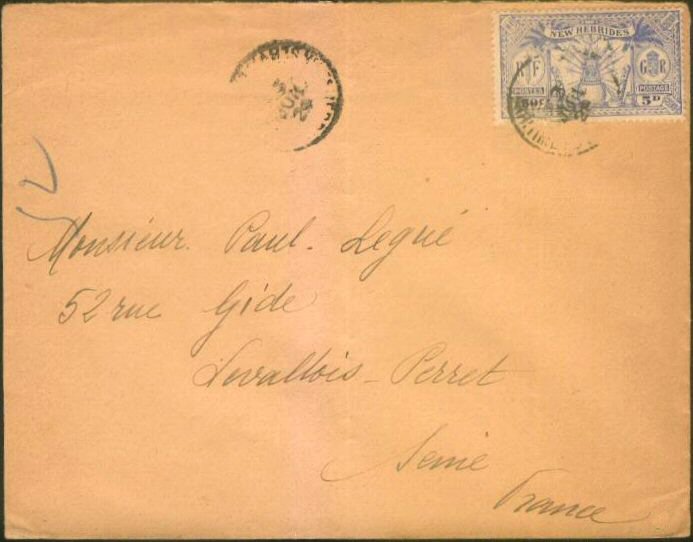 NEW HEBRIDES
R F
G R
POSTES
POSTAGE
50c
5D
Monsieur. Paul. Legué
52 rue Gide
Levallois-Perret
Seine
France